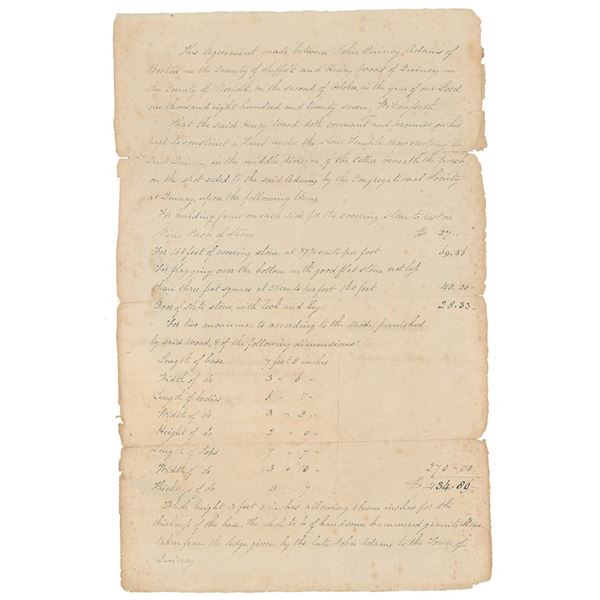 This Agreement made between John Quincy Adams of
Boston in the County of Suffolk and Henry Wood of Quincy in
the County of Norfolk, on the second of October, in the year of our Lord
one thousand eight hundred and twenty seven, Witnesseth
That the said Henry Wood doth covenant and promise on his
part to construct a Tomb under the Stone Temple now erecting in
said Quincy, in the middle division of the Cellar beneath the porch
on the spot ceded to the said Adams by the Congregational Society
at Quincy upon the following terms
For building jams on each side for the covering stone to rest on
Nine Perch of Stone $ 27 "
For 158 feet of covering stone at 37½ cents per foot 59.36
For flagging over the bottom with good flat stone not less
than three feet square at 25 cents per foot 160 feet 40.00
Door of slate stone, with lock and key 28.33
For two monuments according to the model furnished
by said Wood, & of the following dimensions
Length of base 7 feet 2 inches
Width of do 3 " 6 "
Length of bodies
Width of do 3 " 2 "
Height of do 2 " 0 "
Length of Tops 7 " 7 "
Width of do 3 " 270-00
Thickness of do 0 " 7 " $ 434.69
Whole height 3 feet 6 inches allowing eleven inches for the
thickness of the base. The whole to be of handsome hammered granite Stone
taken from the ledge given by the late John Adams, to the Town of
Quincy